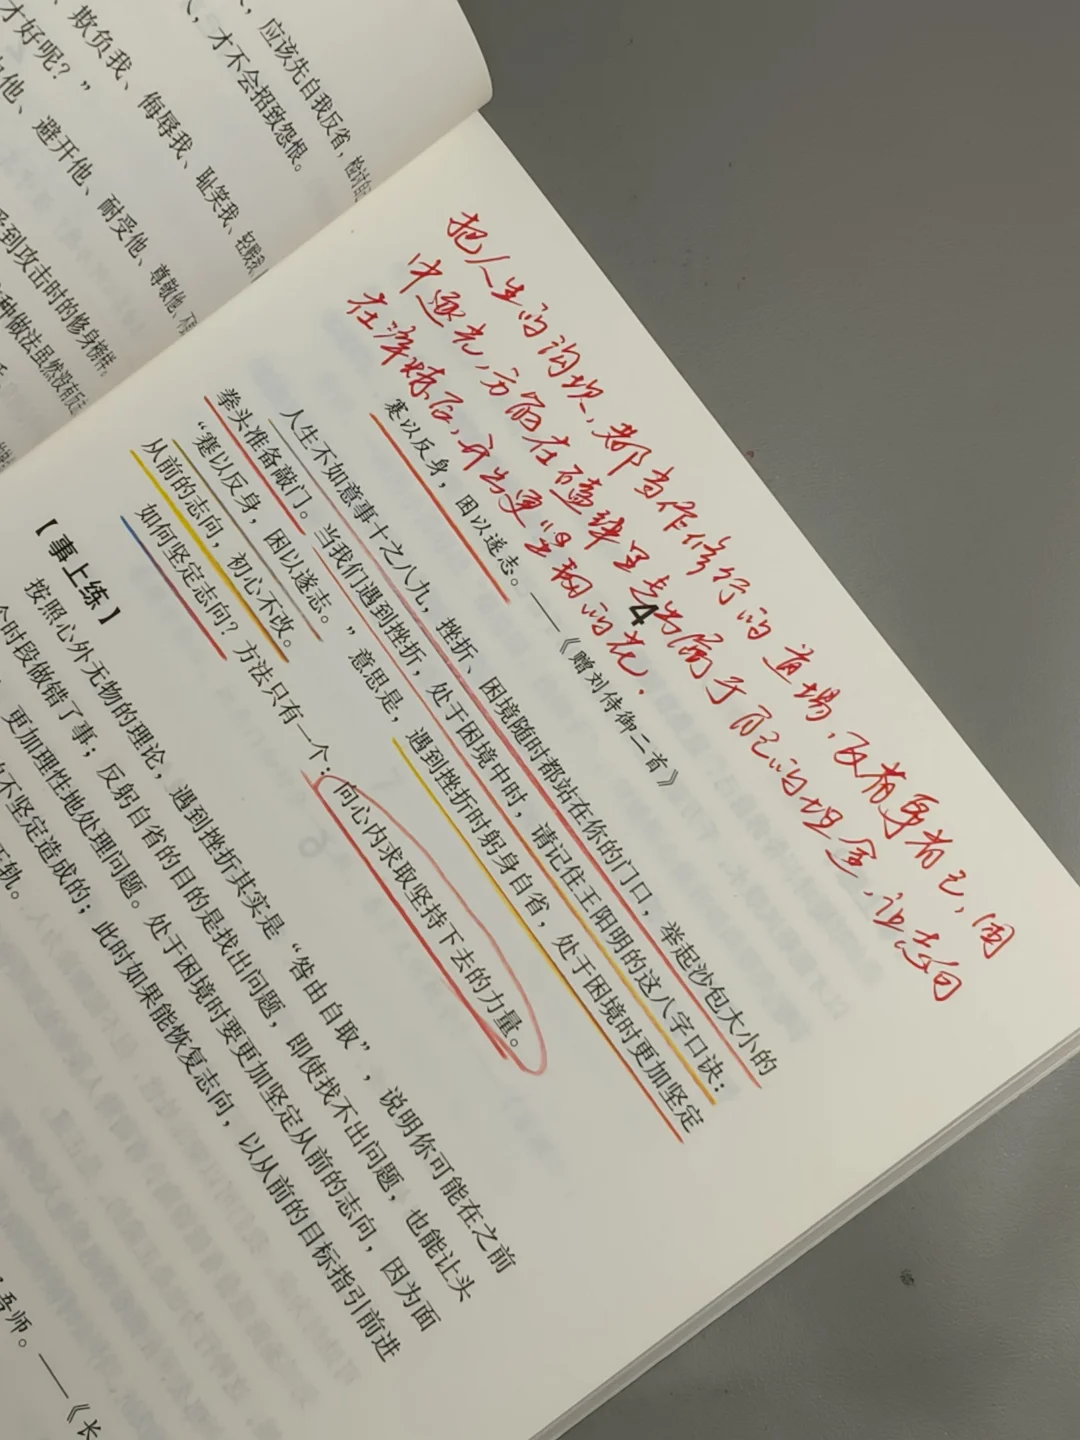 ，应该先自我反省，检讨自
，才不会招致怨恨。
、欺负我、侮辱我、耻笑我、轻贱我
才好呢？”
他、避开他、耐受他、尊敬他、不
受到攻击时的修身榜样。
种做法虽然没有反
把人生的沟坎，都当作修行的道场，反省事省己，困
中逐光，方能在磕绊里
在淬炼后，开出更坚韧的花．
4
蹇以反身，困以遂志。——《赠刘侍御二首》
人生不如意事十之八九，挫折、困境随时都站在你的门口，举起沙包大小的
拳头准备敲门。当我们遇到挫折，处于困境中时，请记住王阳明的这八字口诀：
“蹇以反身，困以遂志。”意思是，遇到挫折时躬身自省，处于困境时更加坚定
从前的志向，初心不改。
如何坚定志向？方法只有一个：向心内求取坚持下去的力量。
【事上练】
按照心外无物的理论，遇到挫折其实是“咎由自取”，说明你可能在之前
个时段做错了事；反躬自省的目的是找出问题，即使找不出问题，也能让头
更加理性地处理问题。处于困境时要更加坚定从前的志向，因为面
不坚定造成的；此时如果能恢复志向，以从前的目标指引前进
正轨。
吾师。——《长